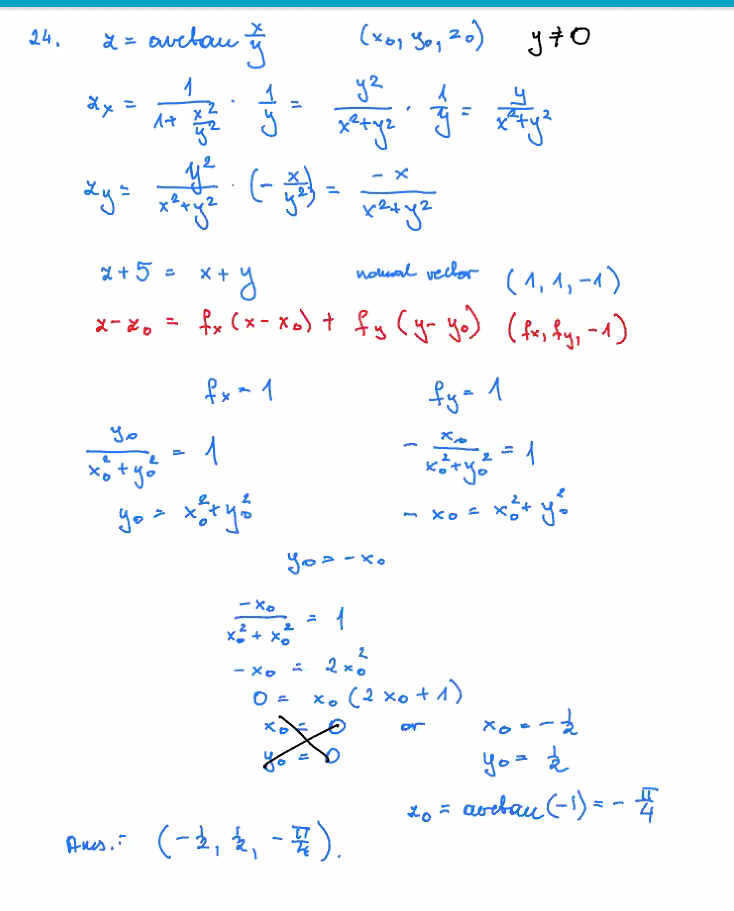 24. z = arctan x/y (x₀, y₀, z₀) y ≠ 0
z_x = 1/(1 + x²/y²) · 1/y = y²/(x²+y²) · 1/y = y/(x²+y²)
z_y = y²/(x²+y²) · (− x/y²) = −x/(x²+y²)
z + 5 = x + y normal vector (1, 1, −1)
z − z₀ = f_x (x − x₀) + f_y (y − y₀) (f_x, f_y, −1)
f_x = 1 f_y = 1
y₀/(x₀² + y₀²) = 1 − x₀/(x₀² + y₀²) = 1
y₀ = x₀² + y₀² − x₀ = x₀² + y₀²
y₀ = − x₀
−x₀/(x₀² + x₀²) = 1
− x₀ = 2x₀²
0 = x₀ (2x₀ + 1)
x₀ = 0 or x₀ = − 1/2
y₀ = 0 y₀ = 1/2
z₀ = arctan (−1) = − π/4
Ans.: (− 1/2, 1/2, − π/4).